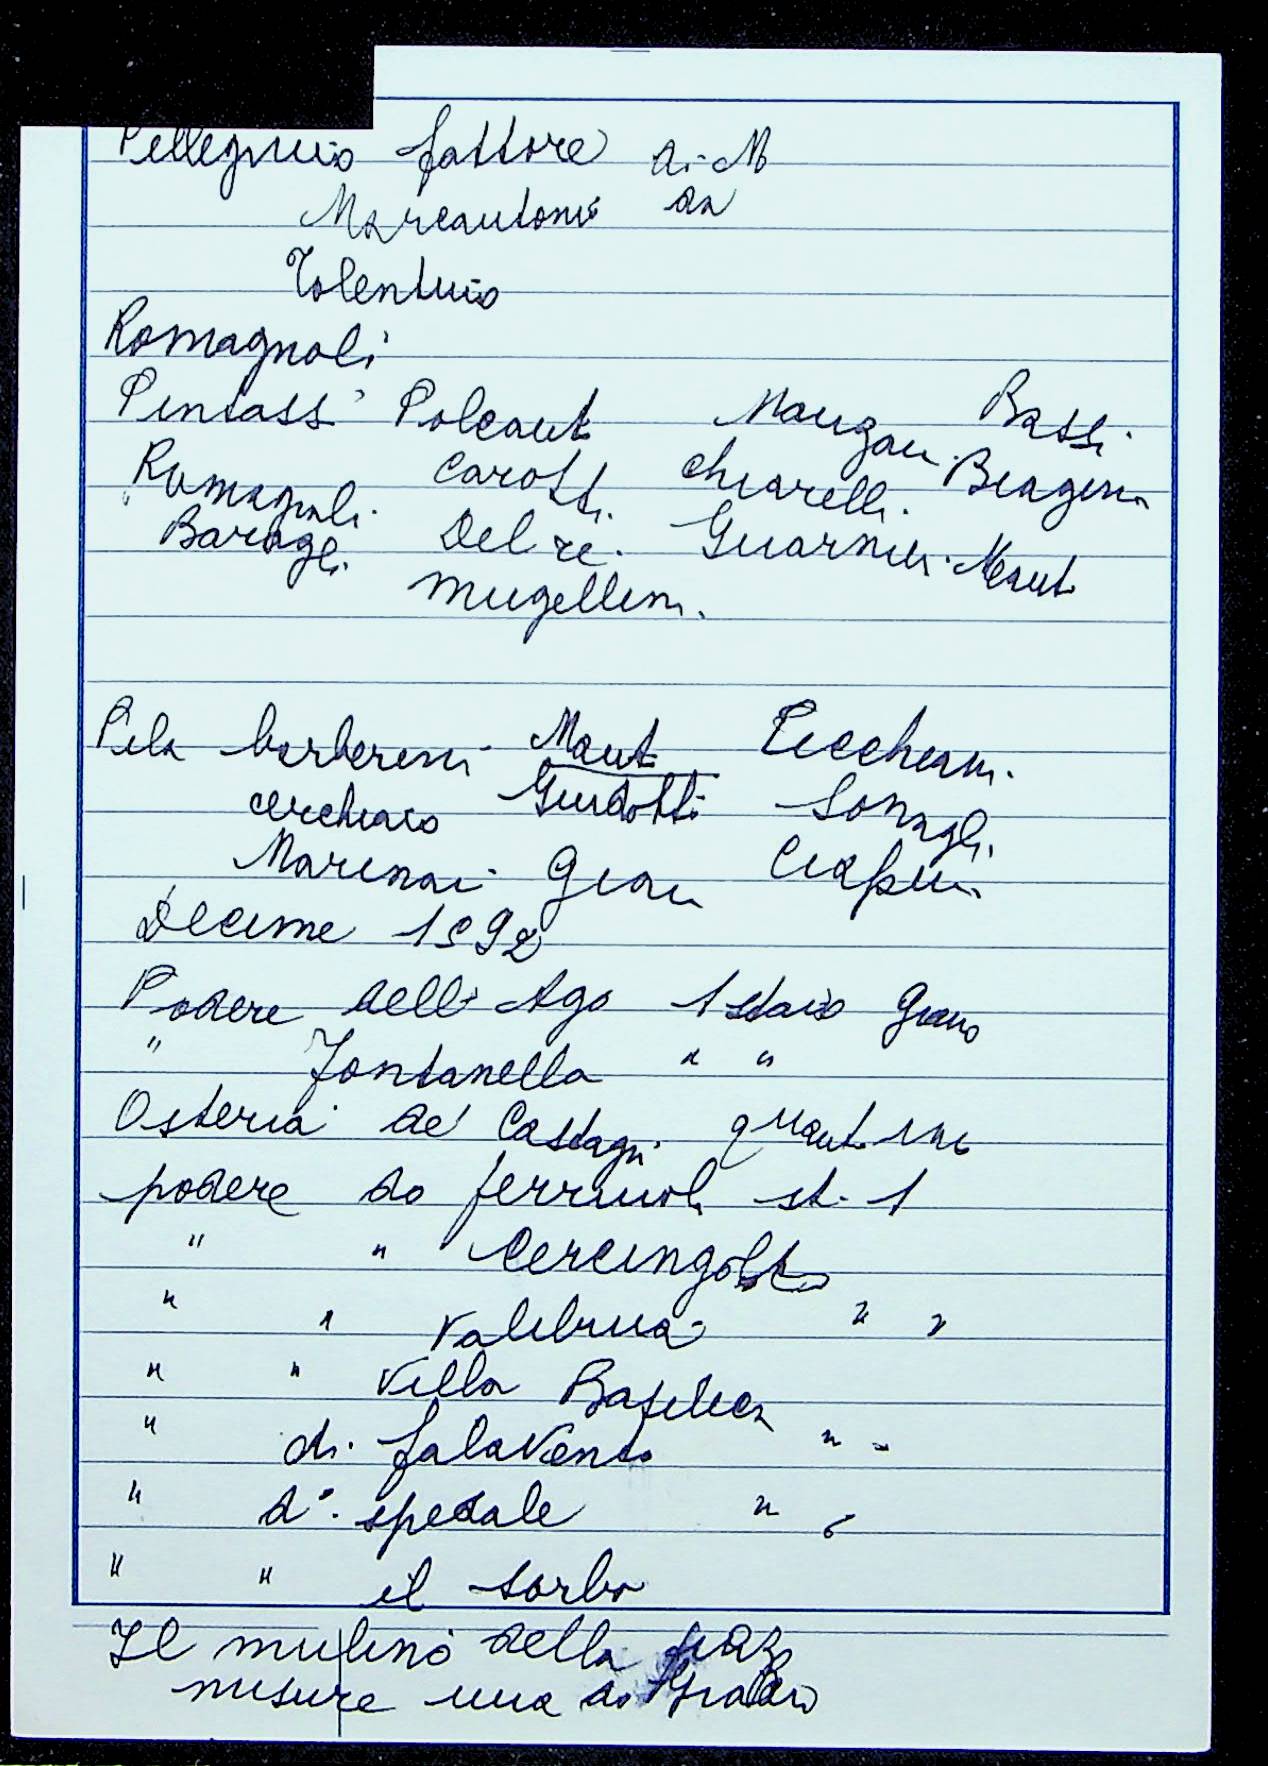 Pellegrino fattore di M
Marcantonio da
Tolentino
Romagnoli
Pintassi Polcanti Manzani Bassi
Romagnoli Carotti Chiarelli Biagini
Baragli Del re Guarnieri Manti
Mugellini
Pila barberini Manti Piccheani
cerchiaio Guidotti Sonagli
Marinai Gian Ciaspini
Decime 1592
Podere dell' Ago 1 staio Grano
" Fontanella " "
Osteria de Castagni quarti uno
podere di ferrinoli st. 1
" "
" " Valibuia " "
" " Villa Basilica
" di falavento " "
" di spedale " "
" " il sorbo
Il mulino della
misure una di Grano